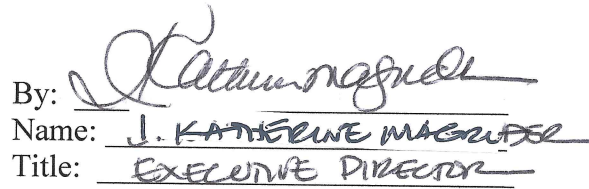 By: J Katherine Magruder
Name: J. KATHERINE MAGRUDER
Title: EXECUTIVE DIRECTOR